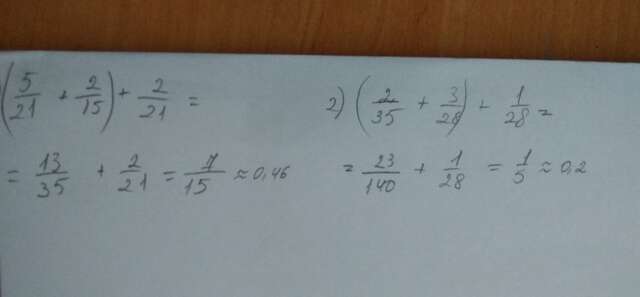 (5/21 + 2/15) + 2/21 =
= 13/35 + 2/21 = 7/15 ≈ 0,46
2) (2/35 + 3/28) + 1/28 =
= 23/140 + 1/28 = 1/5 ≈ 0,2